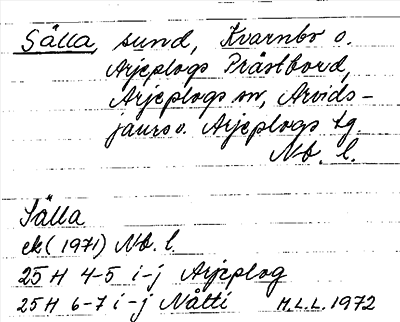 Sälla, sund, Kvarnbo o.
Arjeplogs Prästbord,
Arjeplogs sn, Arvids-
jaurs o. Arjeplogs tg.
Nb. l.
Sälla
ek (1971) Nb. l
25H 4-5 i-j Arjeplog
25H 6-7 i-j Nåtti M.L.L. 1972